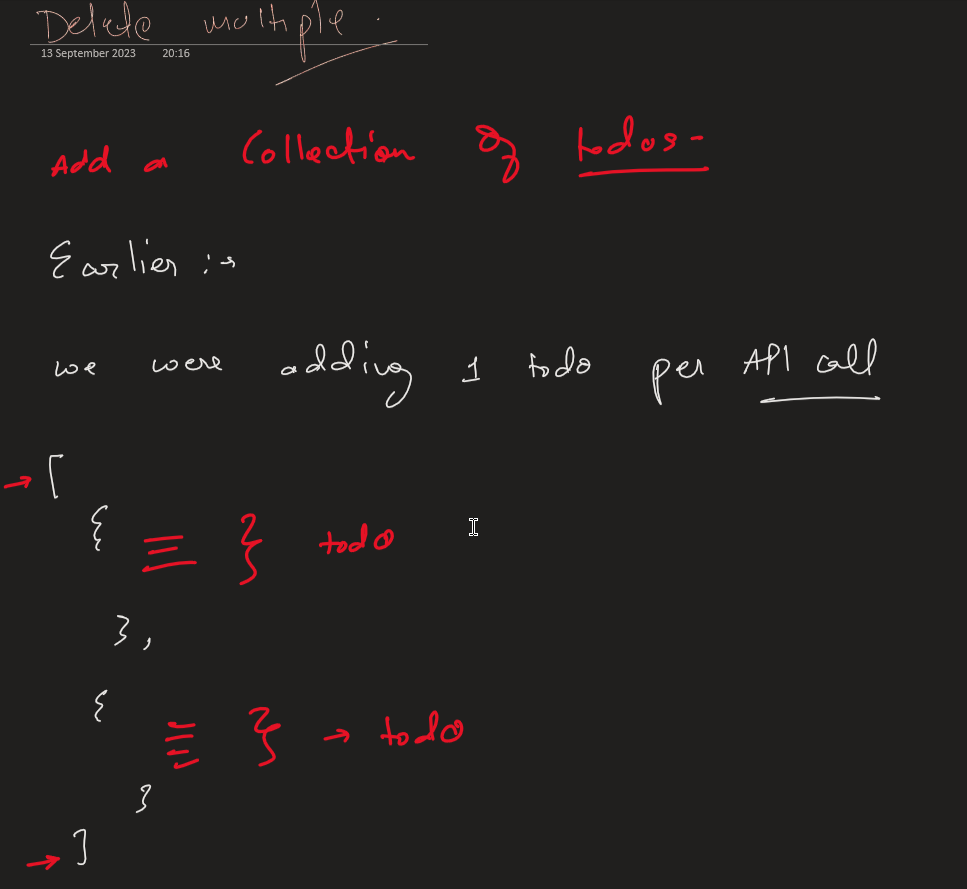 Delete multiple.
13 September 2023 20:16
Add a Collection Of todos-
Earlier :→
we were adding 1 todo per API call
→ [
{ ≡ } todo
},
{ ≡ } → todo
}
→ ]